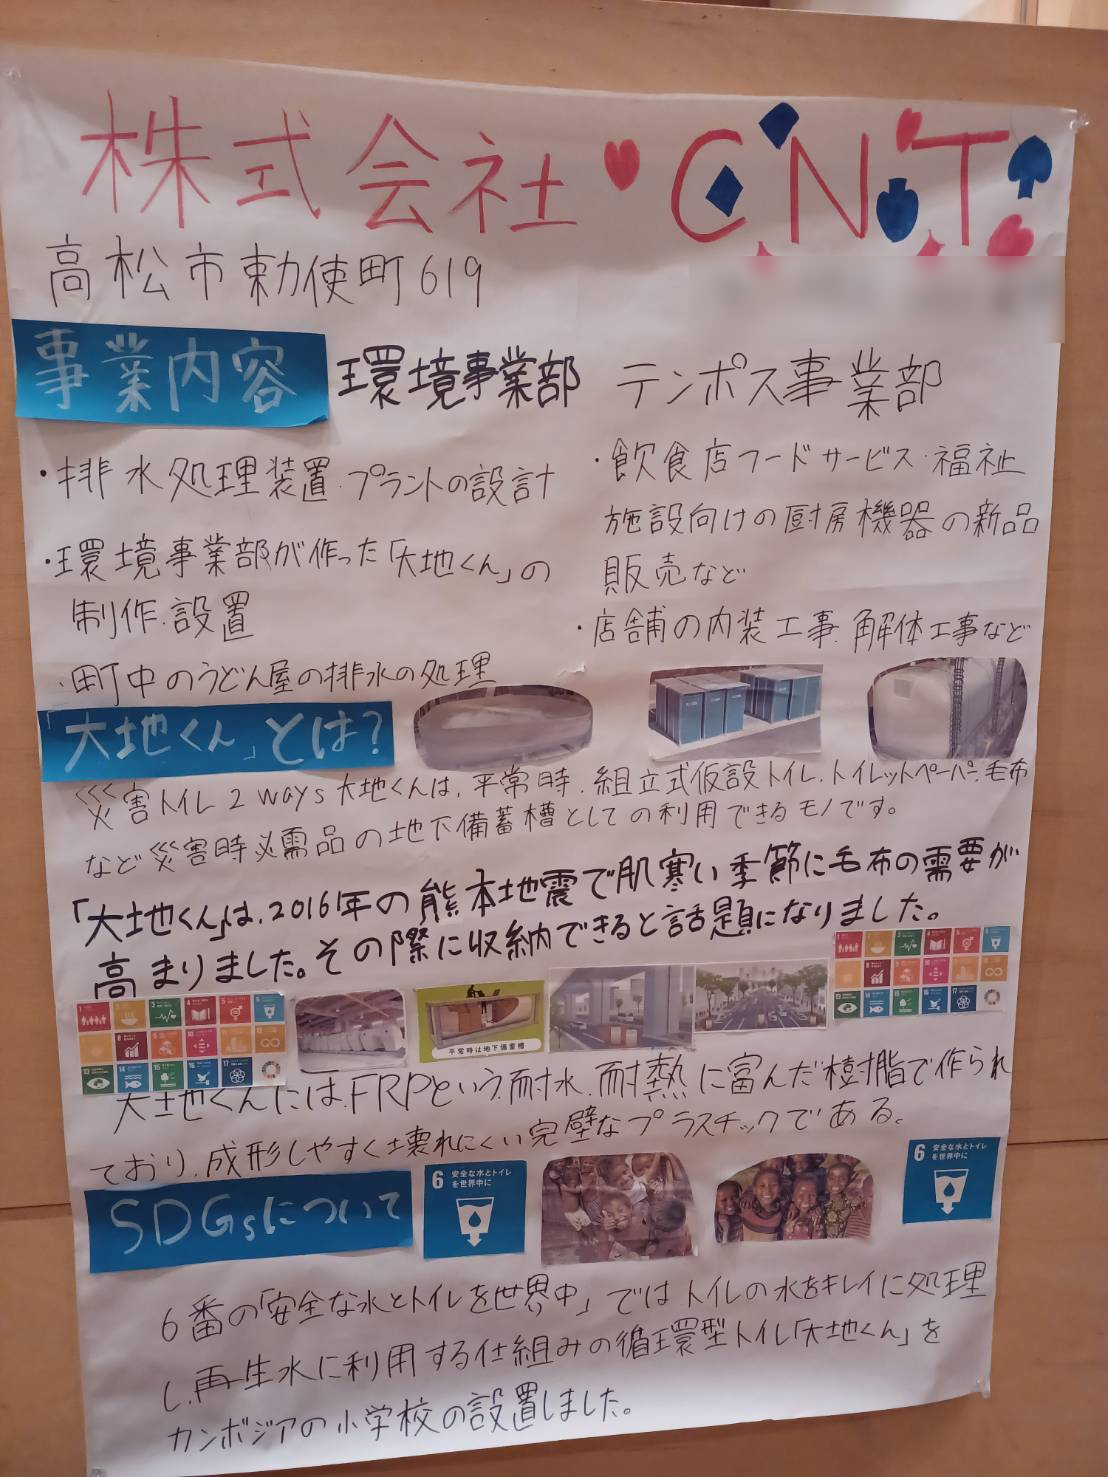 株式会社 CNT
高松市勅使町619
事業内容
環境事業部
・排水処理装置・プラントの設計
・環境事業部が作った「大地くん」の
制作・設置
・町中のうどん屋の排水の処理
テンポス事業部
・飲食店フードサービス・福祉
施設向けの厨房機器の新品
販売など
・店舗の内装工事・解体工事など
「大地くん」とは?
災害トイレ2ways大地くんは、平常時、組立式仮設トイレ、トイレットペーパー、毛布
など災害時必需品の地下備蓄槽としての利用できるモノです。
「大地くん」は、2016年の熊本地震で肌寒い季節に毛布の需要が
高まりました。その際に収納できると話題になりました。
平常時は地下備蓄槽
大地くんには、FRPという、耐水、耐熱に富んだ樹脂で作られ
ており、成形しやすく壊れにくい完璧なプラスチックである。
SDGsについて
6 安全な水とトイレ
を世界中に
6 安全な水とトイレ
を世界中に
6番の「安全な水とトイレを世界中」ではトイレの水をキレイに処理
し、再生水に利用する仕組みの循環型トイレ「大地くん」を
カンボジアの小学校の設置しました。